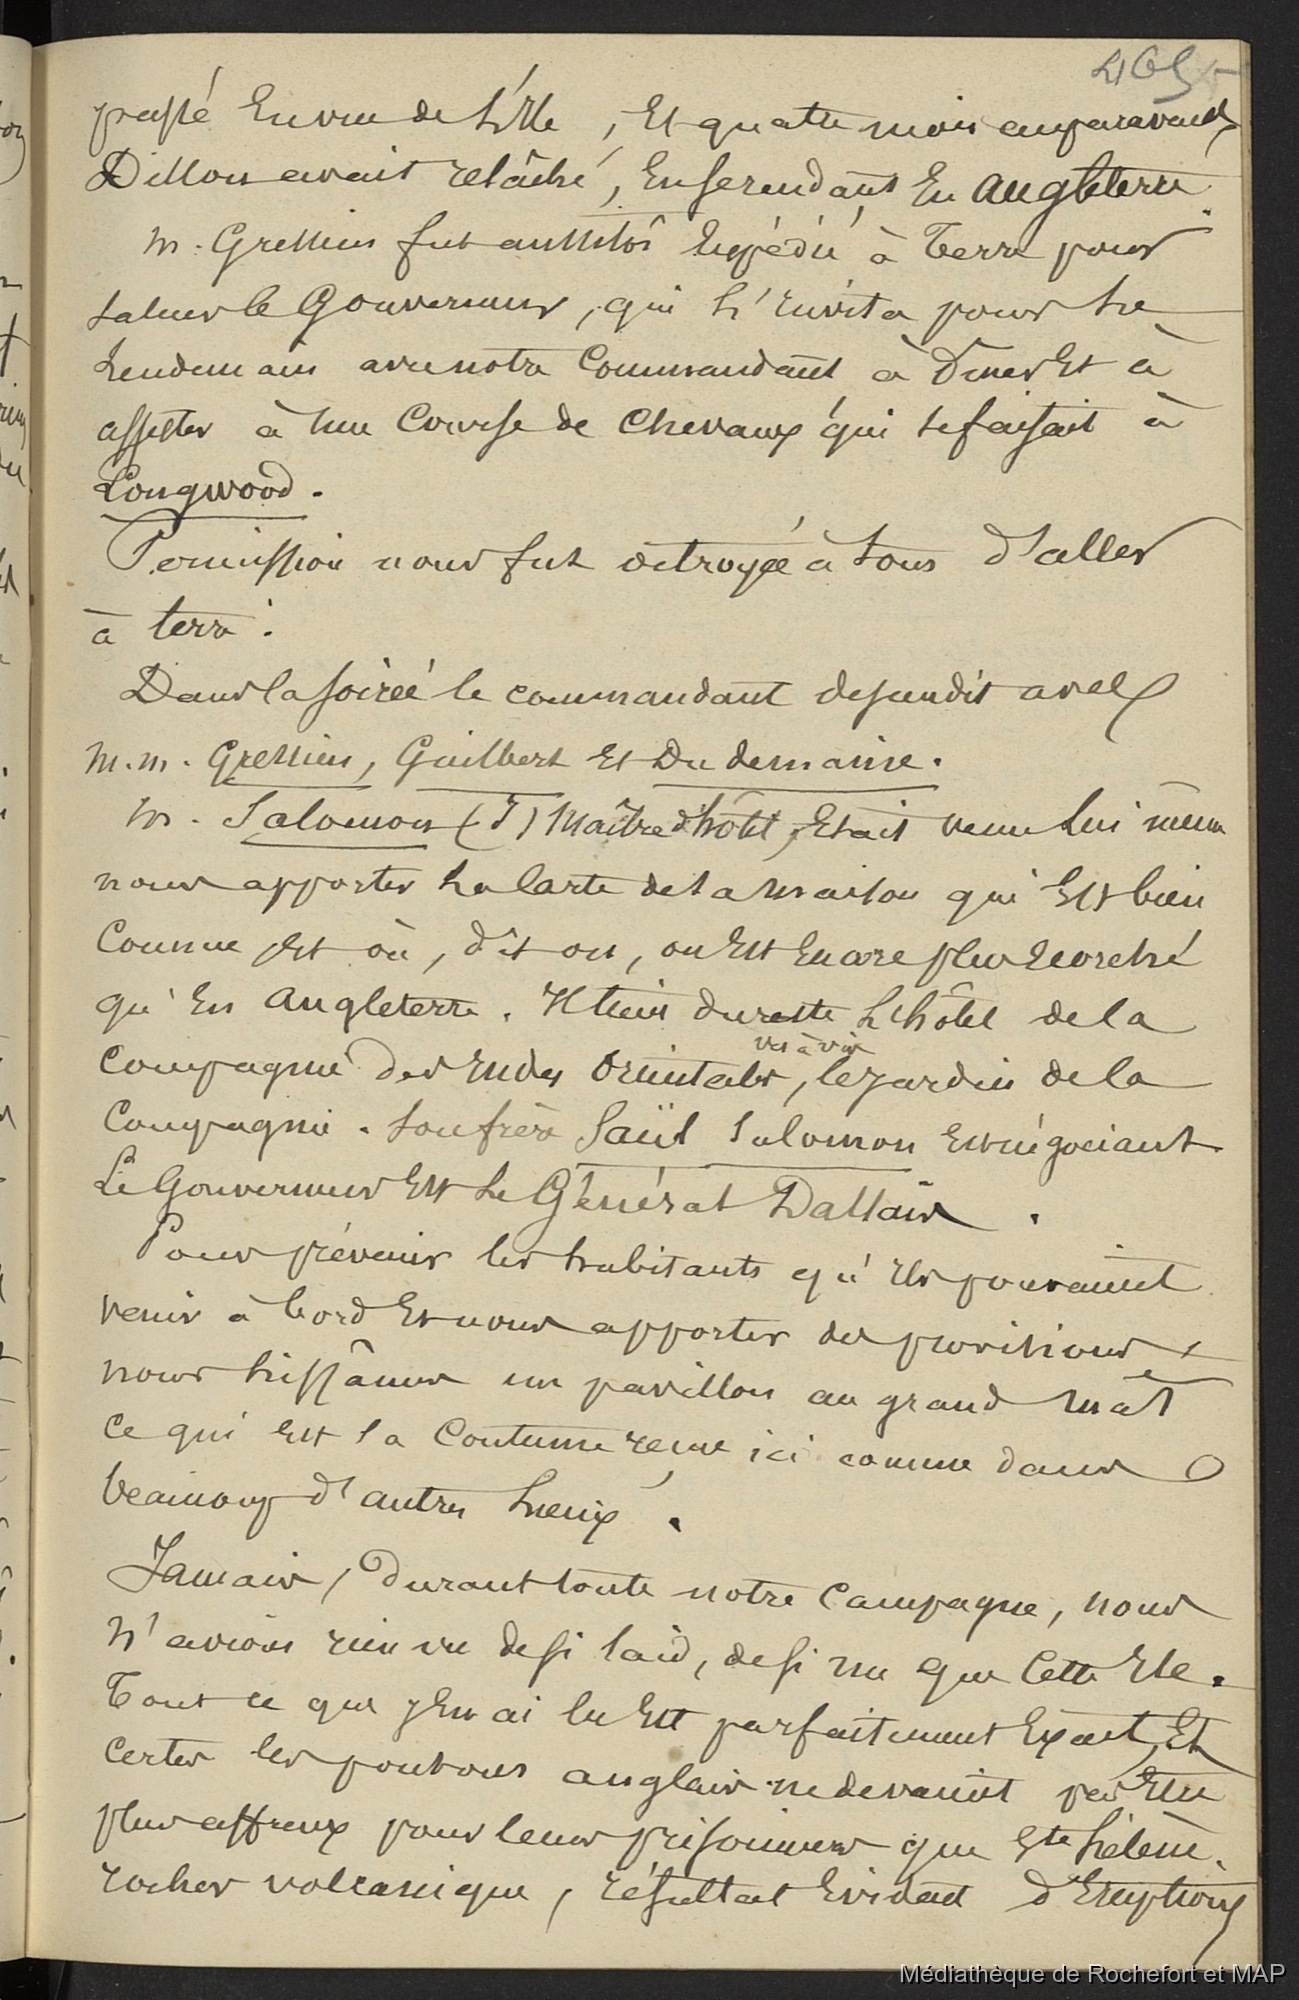 465
passé en vue de l'Ile, et quatre mois auparavant
Dillon avait relâché, en se rendant en Angleterre.
M. Gressien fut aussitôt expédié à Terre pour
saluer le Gouverneur, qui l'invita pour le
lendemain avec notre Commandant à Dîner et à
assister à une Course de Chevaux qui se faisait à
Longwood.
Permission nous fut octroyée à tous d'aller
à terre.
Dans la soirée le commandant descendit avec
M.M. Gressien, Guilbert et Dudemaine.
M. Salomon (J) Maître d'hôtel, était venu lui même
nous apporter la Carte de la Maison qui est bien
Connue et où, dit on, on est encore plus écorché
qu'en Angleterre. Il tient du reste l'hôtel de la
vis à vis
Compagnie des Indes Orientales, le jardin de la
Compagnie. Son frère Saül Salomon est négociant.
Le Gouverneur est le Général Dallas.
Pour prévenir les habitants qu'ils pouvaient
venir à bord et nous apporter des provisions,
nous hissâmes un pavillon au grand mât
ce qui est la Coutume reçue ici comme dans
beaucoup d'autres lieux.
Jamais, durant toute notre Campagne, nous
n'avions rien vu de si laid, de si nu que Cette Ile.
Tout ce que j'en ai lu est parfaitement Exact, et
certes les pontons anglais ne devaient pas être
plus affreux pour leurs prisonniers que Ste hélène.
rocher volcanique, résultat évident d'Eruptions
Médiathèque de Rochefort et MAP